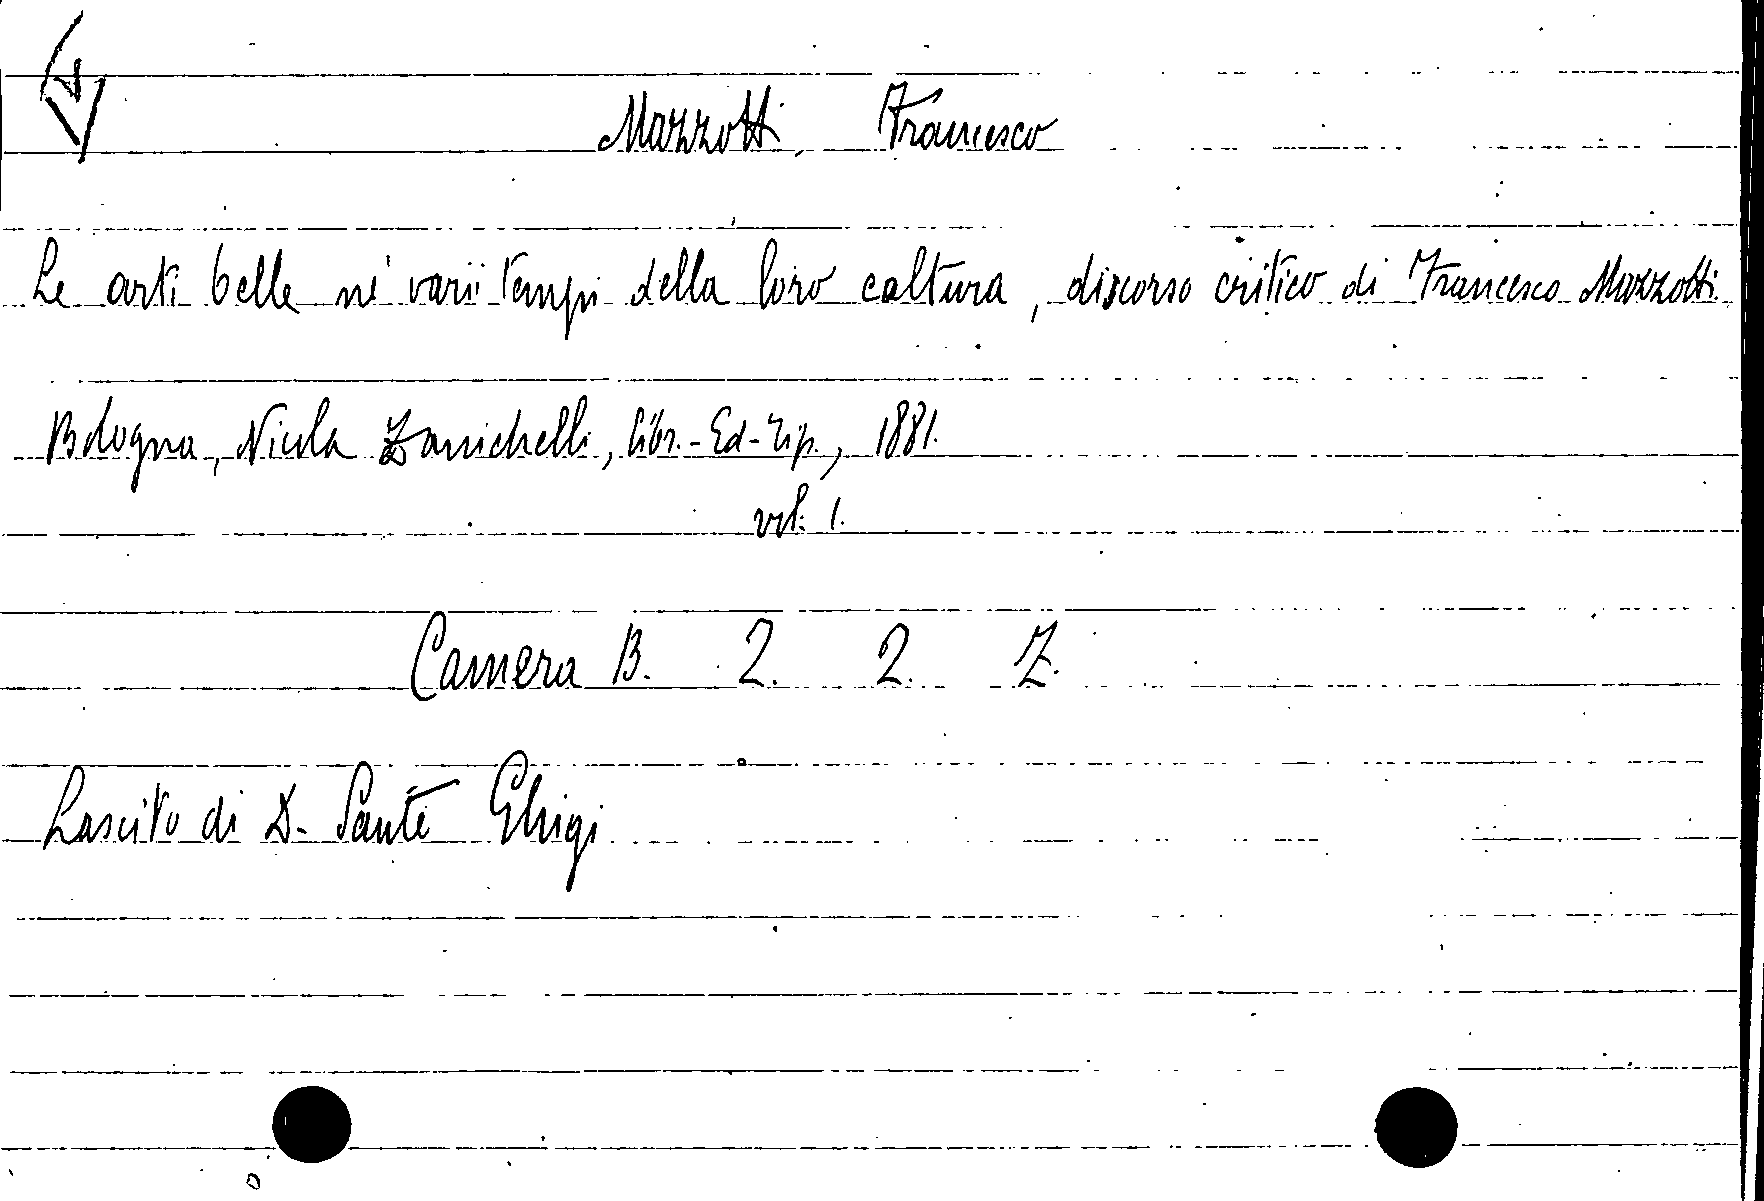 Mazzotti, Francesco
Le arti belle ne' varii tempi della loro coltura, discorso critico di Francesco Mazzotti.
Bologna, Nicola Zanichelli, libr.-Ed-Tip., 1881.
vol: 1.
Camera B. 2. 2. Z.
Lascito di D. Sante Ghigi